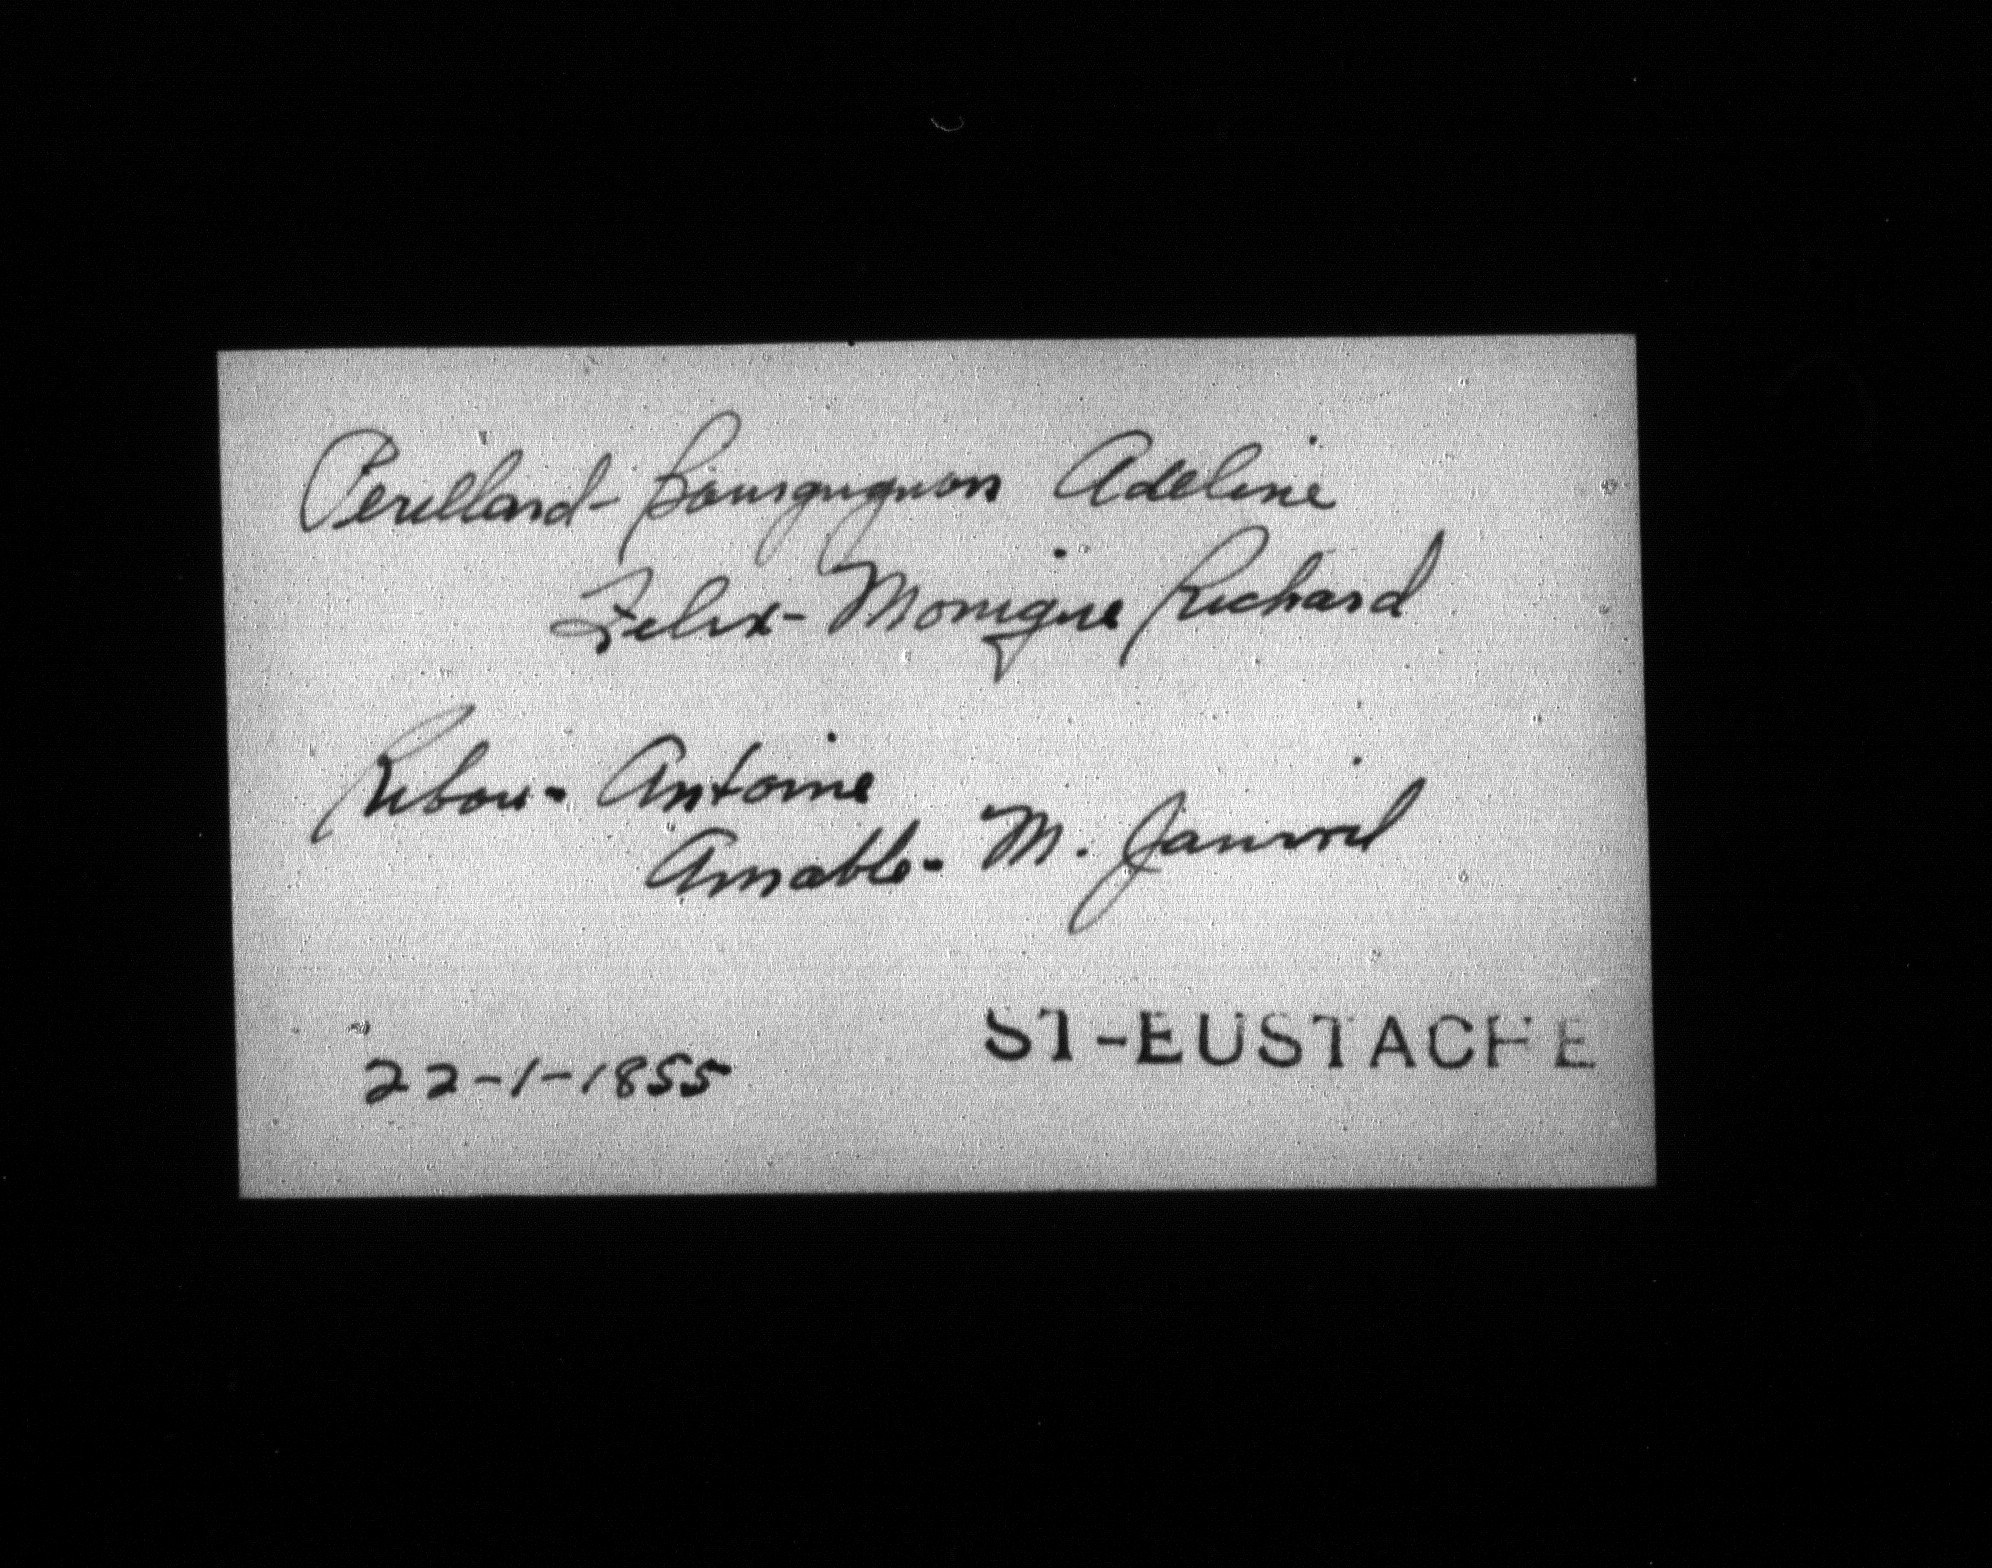 Perillard- Bourguignon Adeline
Felix- Monique Richard
Ribou- Antoine
Amable- M. Janvril
22-1-1855
ST-EUSTACHE